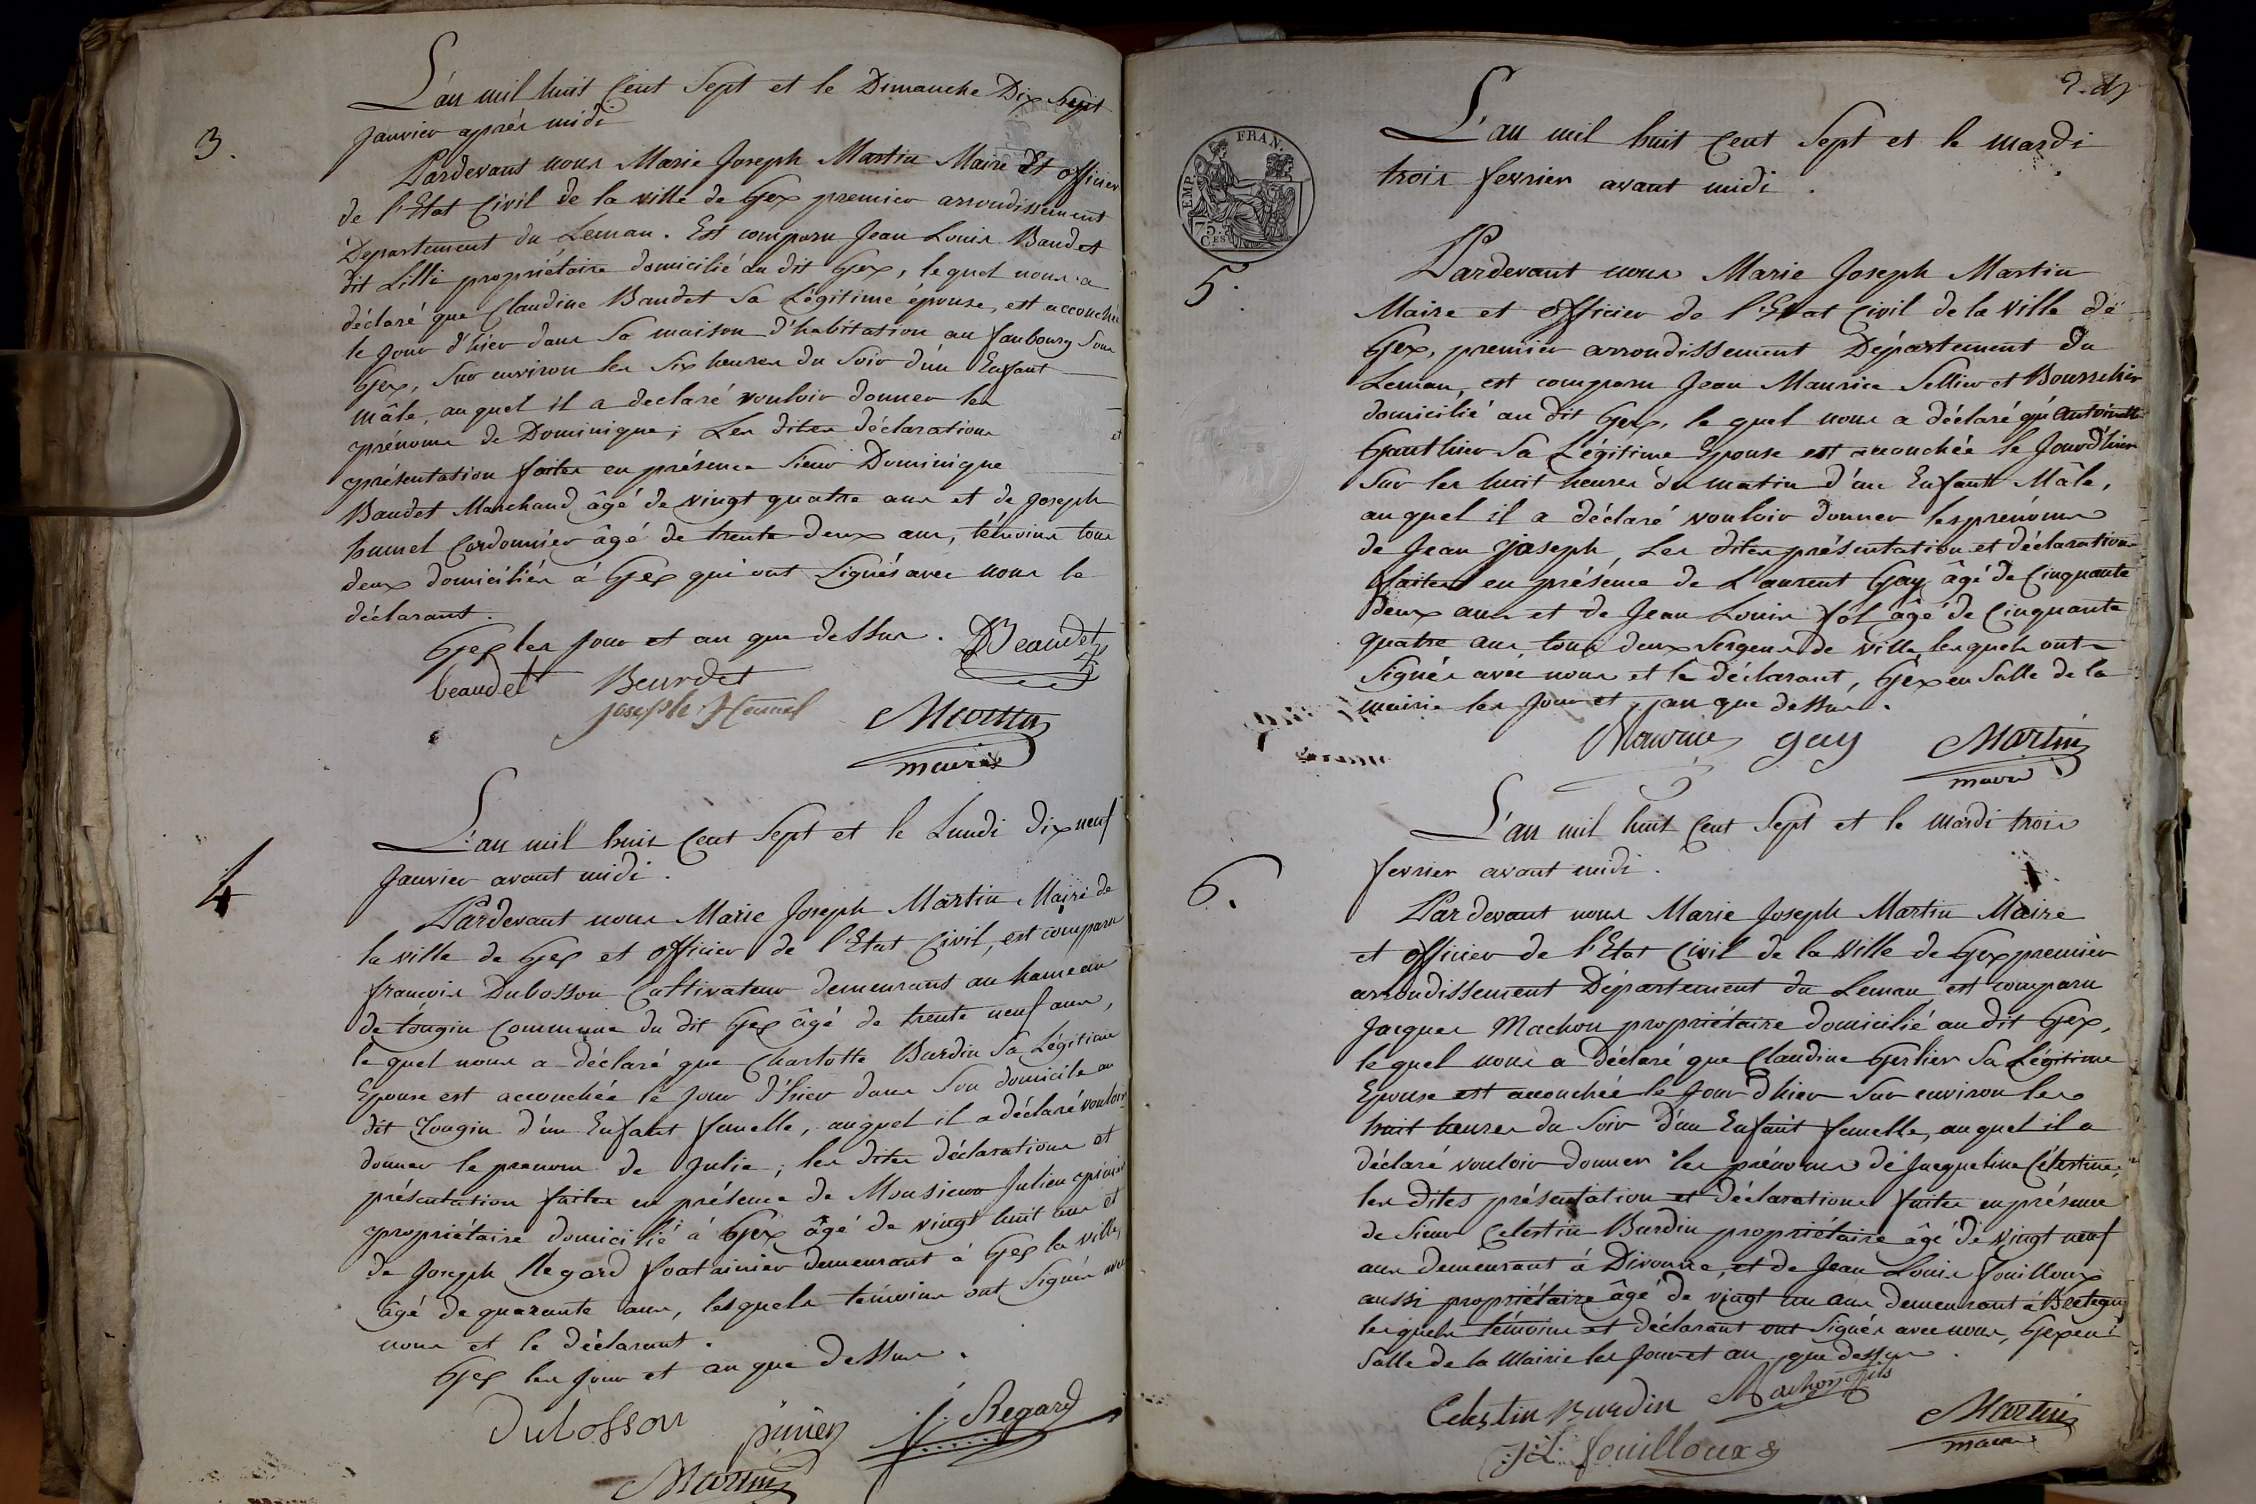 L'an mil huit Cent Sept et le Dimanche Dix Sept
Janvier après midi
3.
Pardevant nous Marie Joseph Martin Maire et officier
de l'Etat Civil de la ville de Gex premier arrondissement
Departement du Leman. Est comparu Jean Louis Baudet
dit Lilli propriétaire domicilié au dit Gex, lequel nous a
déclaré que Claudine Baudet Sa Légitime épouse, est accouchée
le Jour d'hier dans Sa maison d'habitation au faubourg Sous
Gex, Sur environ les Six heures du Soir d'un Enfant
mâle, auquel il a declaré vouloir donner les
prénoms de Dominique; Les dites déclarations et
présentation faites en présence Sieur Dominique
Baudet Marchand âgé de vingt quatre ans et de Joseph
humel Cordonnier âgé de trente deux ans, témoins tous
deux domiciliés à Gex qui ont Signés avec nous le
déclarant.
Gex les Jour et an que dessus. D Beaudet
beaudet Beurdet
joseph Humel
Martin
maire
L'an mil huit Cent Sept et le Lundi dix neuf
Janvier avant midi.
4
Pardevant nous Marie Joseph Martin Maire de
la ville de Gex et officier de l'Etat Civil, est comparu
françois Dubosson Cultivateur demeurant au hameau
de tougin Commune du dit Gex âgé de trente neuf ans,
le quel nous a déclaré que Charlotte Burdin Sa Légitime
Epouse est accouchée le Jour d'hier dans Son domicile au
dit Tougin d'un Enfant femelle, auquel il a déclaré vouloir
donner le prenom de Julie; les dites déclarations et
présentation faites en présence de Monsieur Julien
propriétaire domicilié à Gex âgé de vingt huit ans et
de Joseph Regard fontainier demeurant à Gex la ville,
âgé de quarante ans, lesquels témoins ont Signés avec
nous et le déclarant.
Gex les Jour et an que Dessus.
Dubosson J. Regard
Martin
2.
L'an mil huit Cent Sept et le mardi
trois fevrier avant midi.
EMP. FRAN.
75.
CES
5.
Pardevant nous Marie Joseph Martin
Maire et officier de l'Etat Civil de la Ville de
Gex, premier arrondissement Département du
Leman, est comparu Jean Maurice Sellier et Bourrelier
domicilié au dit Gex, le quel nous a déclaré qu'Antoinette
Gauthier Sa Légitime Epouse est accouchée le Jour d'hier
Sur les huit heures du matin d'un Enfant Mâle,
auquel il a déclaré vouloir donner les prénoms
de Jean Joseph, Les dites présentation et déclarations
faites en présence de Laurent Gay âgé de Cinquante
deux ans et de Jean Louis fol âgé de Cinquante
quatre ans tous deux Sergens de ville lesquels ont
Signés avec nous et le déclarant, Gex en Salle de la
mairie les Jour et an que dessus.
Maurice gay Martin
maire
L'an mil huit Cent Sept et le mardi trois
fevrier avant midi.
6.
Pardevant nous Marie Joseph Martin Maire
et officier de l'Etat Civil de la Ville de Gex premier
arrondissement Département du Leman est comparu
Jacques Machon propriétaire domicilié au dit Gex,
lequel nous a déclaré que Claudine Gerlier Sa Légitime
Epouse est accouchée le Jour d'hier Sur environ les
huit heures du Soir d'un Enfant femelle, auquel il a
déclaré vouloir donner les prénoms de Jacqueline Célestine,
les dites présentation et déclarations faites en présence
de Sieur Celestin Burdin propriétaire âgé de vingt neuf
ans demeurant à Divonne, et de Jean Louis fouilloux
aussi propriétaire âgé de vingt un ans demeurant à Bretegny
lesquels témoins et déclarant ont Signés avec nous, Gex en
Salle de la Mairie les Jour et an que dessus.
Celestin Burdin Machon fils
Martin
JL fouilloux maire